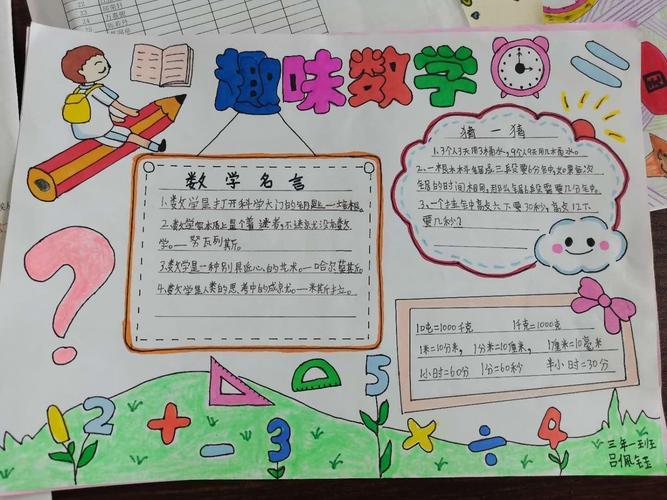 趣味数学
数学名言
1.数学是打开科学大门的钥匙—培根。
2.数学本质上是个着迷者,不迷就没有数
学。—努瓦列斯。
3.数学是一种别具匠心的艺术。—哈尔莫斯。
4.数学是人类的思考中的成就。—米斯
猜一猜
1.3个人3天用3桶水,9个人9天用几桶水。
2.一根木木锯成三段要6分年,如果每次
锯的时间相同,那么锯6段要几分年。
3.一个挂钟敲六下要30秒,敲12下
要几秒?
10吨=1000千克 1千克=1000克
1米=10分米, 1分米=10厘米, 1厘米=10毫米
1小时=60分 1分=60秒 半小时=30分
1 2 + - 3 5 × ÷ 4
三年一班
吕佩